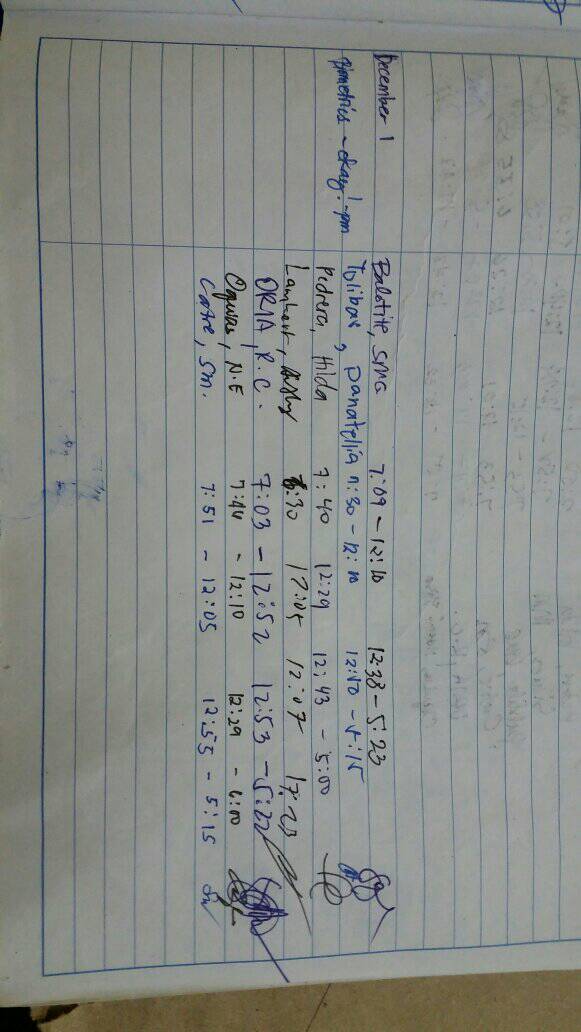 December 1
Biometrics - okay! - pm
Balotite, SMG 7:09 - 12:10 12:38 - 5:23
Tolibas, Panatelia 7:30 - 12:10 12:10 - 5:15
Pedrera, Hilda 7:40 12:29 12:43 - 5:00
Lambert, 6:30 12:05 12:07 17:23
ORIA, R.C. 7:03 - 12:52 12:53 - 5:22
N.E 7:44 - 12:10 12:29 - 6:00
Catre, Sm. 7:51 - 12:05 12:55 - 5:15